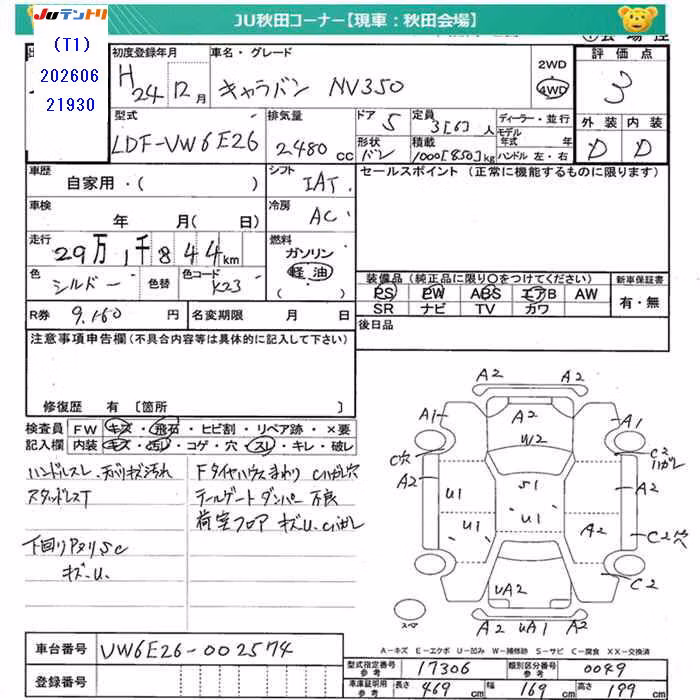 JUテントリ
JU秋田コーナー【現車：秋田会場】
（T1）
202606
21930
初度登録年月
H 24 12月
車名・グレード
キャラバン NV350
2WD
4WD
評価点
3
外装 内装
D D
型式
LDF-VW6E26
排気量
2480cc
ドア 5
形状 バン
定員 3[6]人
積載 1000[850]kg
ディーラー・並行
モデル年式 年
ハンドル 左・右
車歴
自家用・（ ）
シフト
IAT
セールスポイント（正常に機能するものに限ります）
車検
年 月（ 日）
冷房
AC
走行
29万1千844km
燃料
ガソリン
軽油
（ ）
色
シルバー
色替
色コード
K23
装備品（純正品に限り○をつけてください）
PS PW ABS エアB AW
SR ナビ TV カワ
新車保証書
有・無
R券 9,160円
名変期限 月 日
後日品
注意事項申告欄（不具合内容等は具体的に記入して下さい）
修復歴 有〔箇所 〕
検査員記入欄
FW キズ・飛石・ヒビ割・リペア跡・×要
内装 キズ・汚レ・コゲ・穴・スレ・キレ・破レ
ハンドルスレ、天バリキズ汚れ
スタッドレスT
下回りアタリ、SC
キズ.U.
Fタイヤハウスまわり Cハガレ穴
テールゲートダンパー不良
荷室フロア キズU.Cハガレ
A2
A2
A1
A1
W2
C穴
C2
ハガレ
A2
A2
U1
S1
U1
U1
A2
C2穴
C2
UA2
A2 UA1 A2
スペア
A－キズ E－エクボ U－凹み W－補修跡 S－サビ C－腐食 XX－交換済
車台番号
VW6E26-002574
登録番号
型式指定番号 参考 17306
類別区分番号 参考 0049
車庫証明用 参考 長さ 469cm 幅 169cm 高さ 199cm